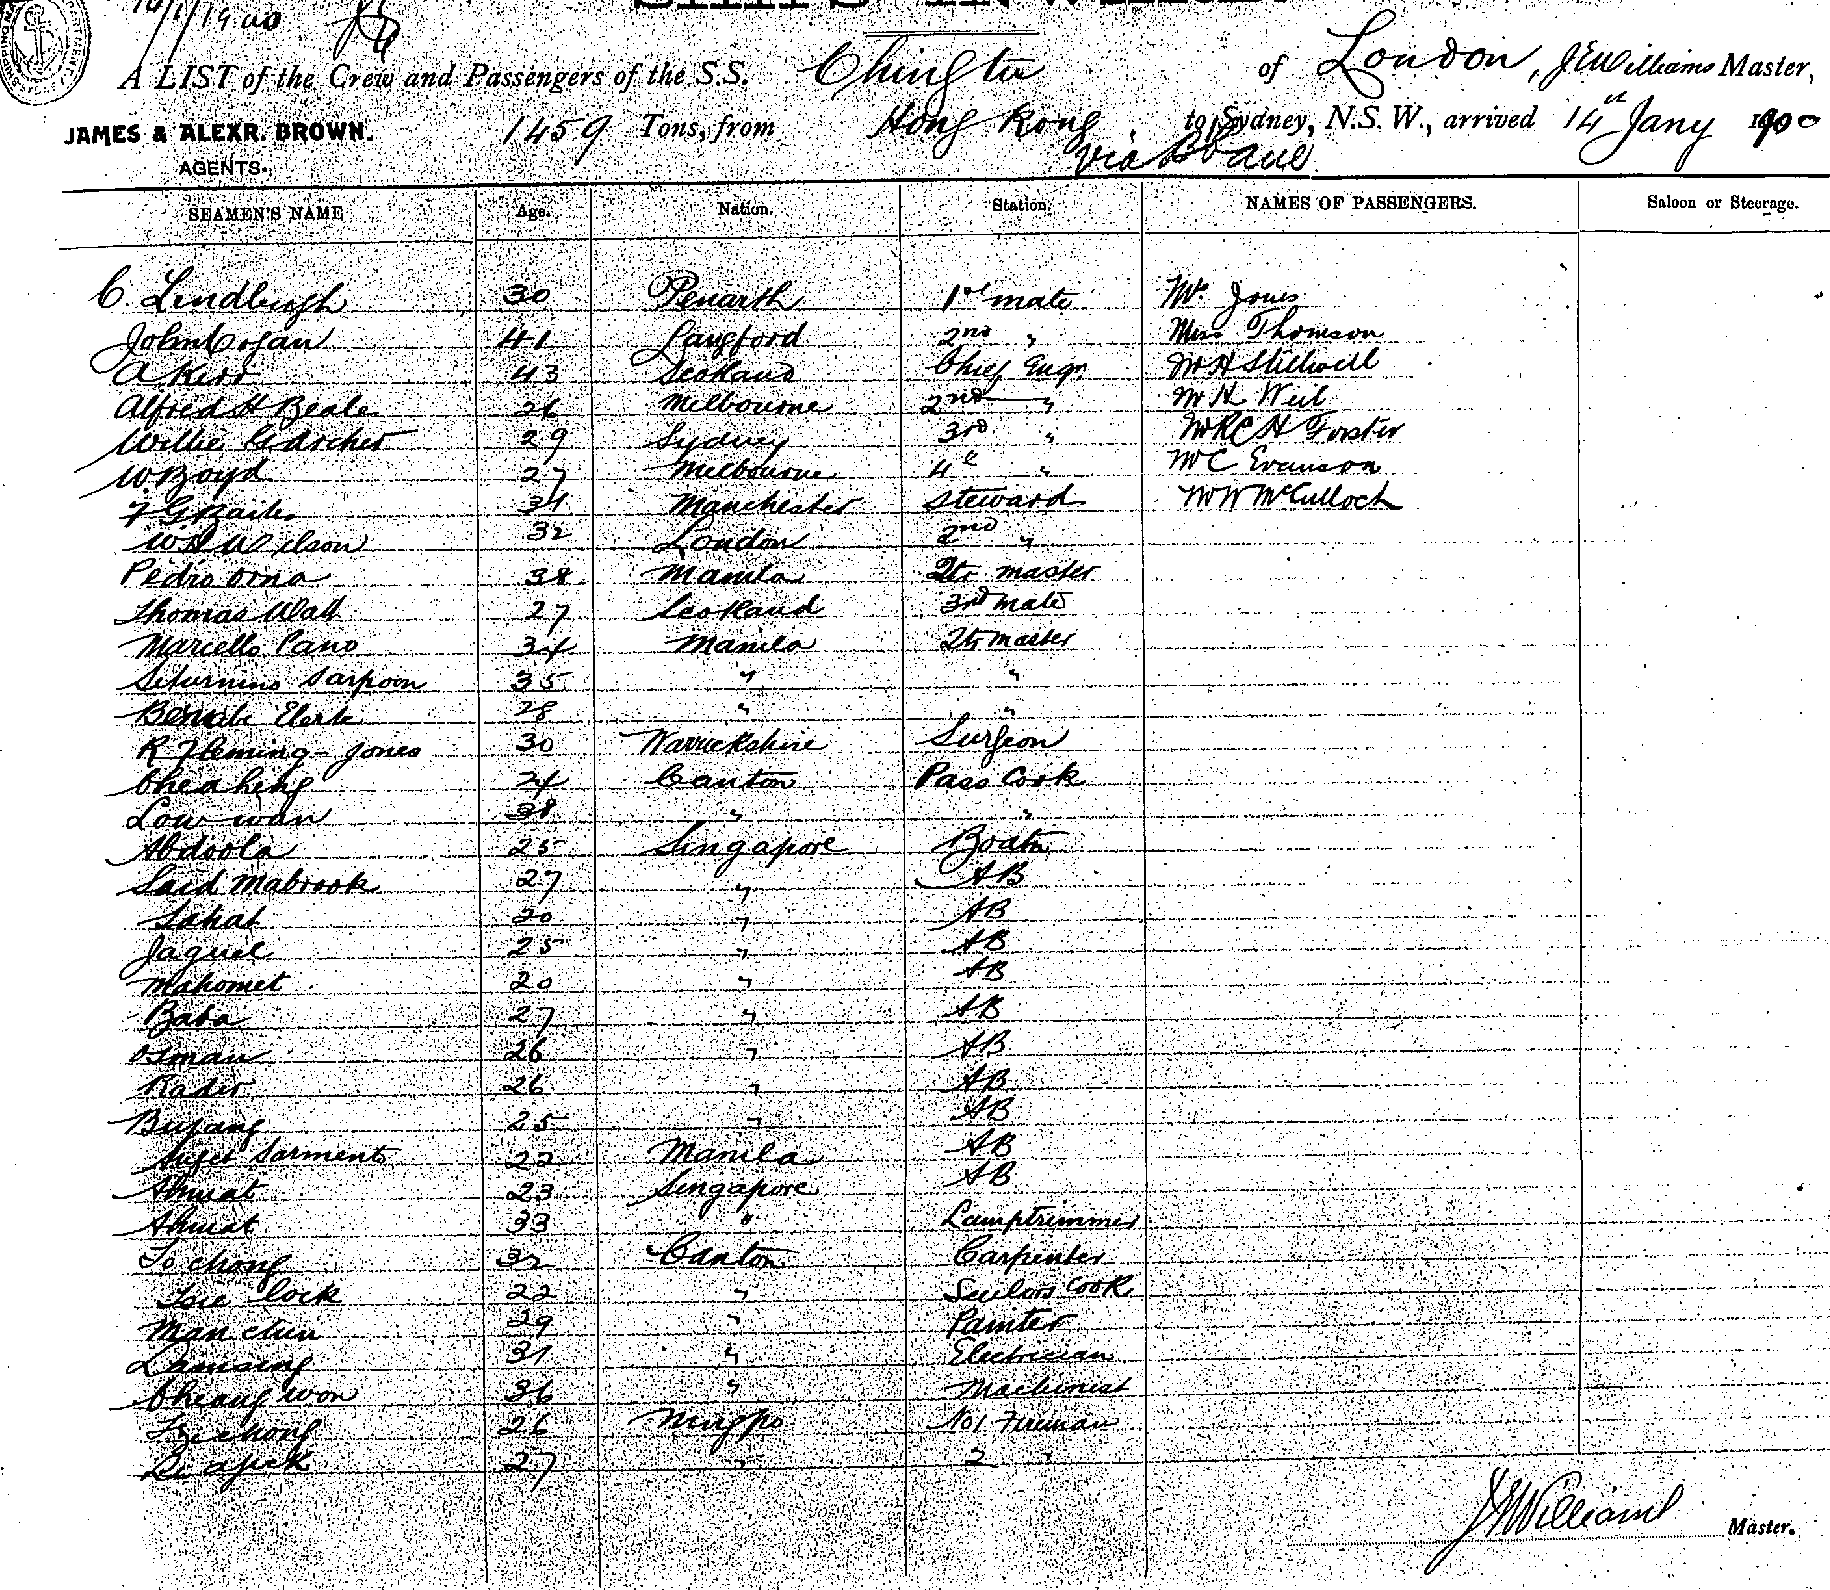 16/1/1900
A LIST of the Crew and Passengers of the S.S. Chingtu of London, J E Williams Master,
JAMES & ALEXR. BROWN. 1459 Tons, from Hong Kong, to Sydney, N.S.W., arrived 14th Jany 1900
AGENTS. via Bbane
SEAMEN'S NAME Age. Nation. Station. NAMES OF PASSENGERS. Saloon or Steerage.
C. Lindbergh 30 Penarth 1st mate Mr Jones
John Cogan 41 Langford 2nd " Miss Thomson
A Kerr 43 Scotland Chief Engr. Mr H Stillwell
Alfred H Beale 26 Melbourne 2nd " Mr H Weil
Willie Archer 29 Sydney 3rd " Mr R C H Forster
W Boyd 27 Melbourne 4th " Mr C Evanson
F G Bailes 34 Manchester Steward Mr W McCulloch
W H Wilson 32 London 2nd "
Pedro Orna 38 Manila Qtr master
Thomas Watt 27 Scotland 3rd mate
Marcello Cano 34 Manila Qtr master
Siturnino Sarpoon 35 " "
28 " "
R Fleming-Jones 30 Warrickshire Surgeon
Cheaheng 24 Canton Pass Cook
Low wan 38 " "
Abdoola 25 Singapore Boatn
Said Mabrook 27 " AB
Sahat 20 " AB
Jaquil 25 " AB
Mahomet 20 " AB
Baba 27 " AB
Osman 26 " AB
Kader 26 " AB
Buyang 25 " AB
Sarmento 22 Manila AB
Ahmat 23 Singapore AB
Ahmat 33 " Lamptrimmer
So chong 32 Canton Carpenter
lock 22 " Sailors Cook
Man chun 29 " Painter
Lamseng 31 " Electrician
Cheang won 36 " Machinist
26 Ningpo No 1 Fireman
27 " 2 "
J E Williams Master.